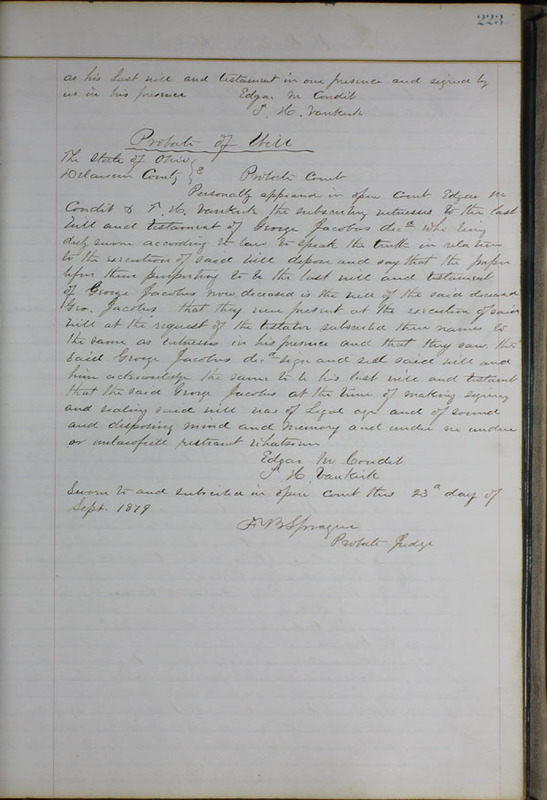 223
as his last will and testament in our presence and signed by
us in his presence Edgar M Condit
T. H. Vankirk
Probate of Will
The State of Ohio
Delaware County } Probate Court
Personally appeared in open Court Edgar M
Condit & T. H. Vankirk the subscribing witnesses to the last
Will and testament of George Jacobus decd who being
duly sworn according to law to speak the truth in relation
to the execution of said will depose and say that the paper
before them purporting to be the last will and testament
of George Jacobus now deceased is the will of the said deceased
Geo. Jacobus that they were present at the execution of said
will at the request of the testator subscribed their names to
the same as witnesses in his presence and that they saw the
said George Jacobus decd sign and seal said will and
him acknowledge the same to be his last will and testament
that the said George Jacobus at the time of making signing
and sealing said will was of Legal age and of sound
and disposing mind and memory and under no undue
or unlawful restraint whatsoever
Edgar M Condit
T. H. Vankirk
Sworn to and subscribed in open court this 23d day of
Sept. 1879
B Sprague
Probate Judge